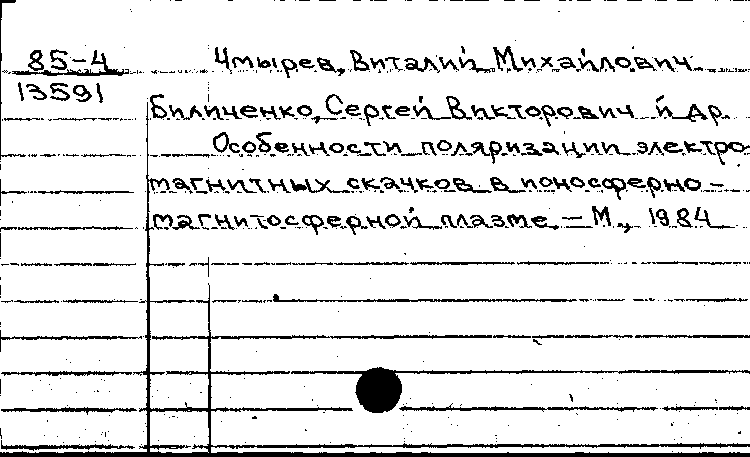 85-4
13591
Чмырев, Виталий Михайлович
Биличенко, Сергей Викторович и др.
Особенности поляризации электро
магнитных скачков в ионосферно-
магнитосферной плазме. - М., 1984